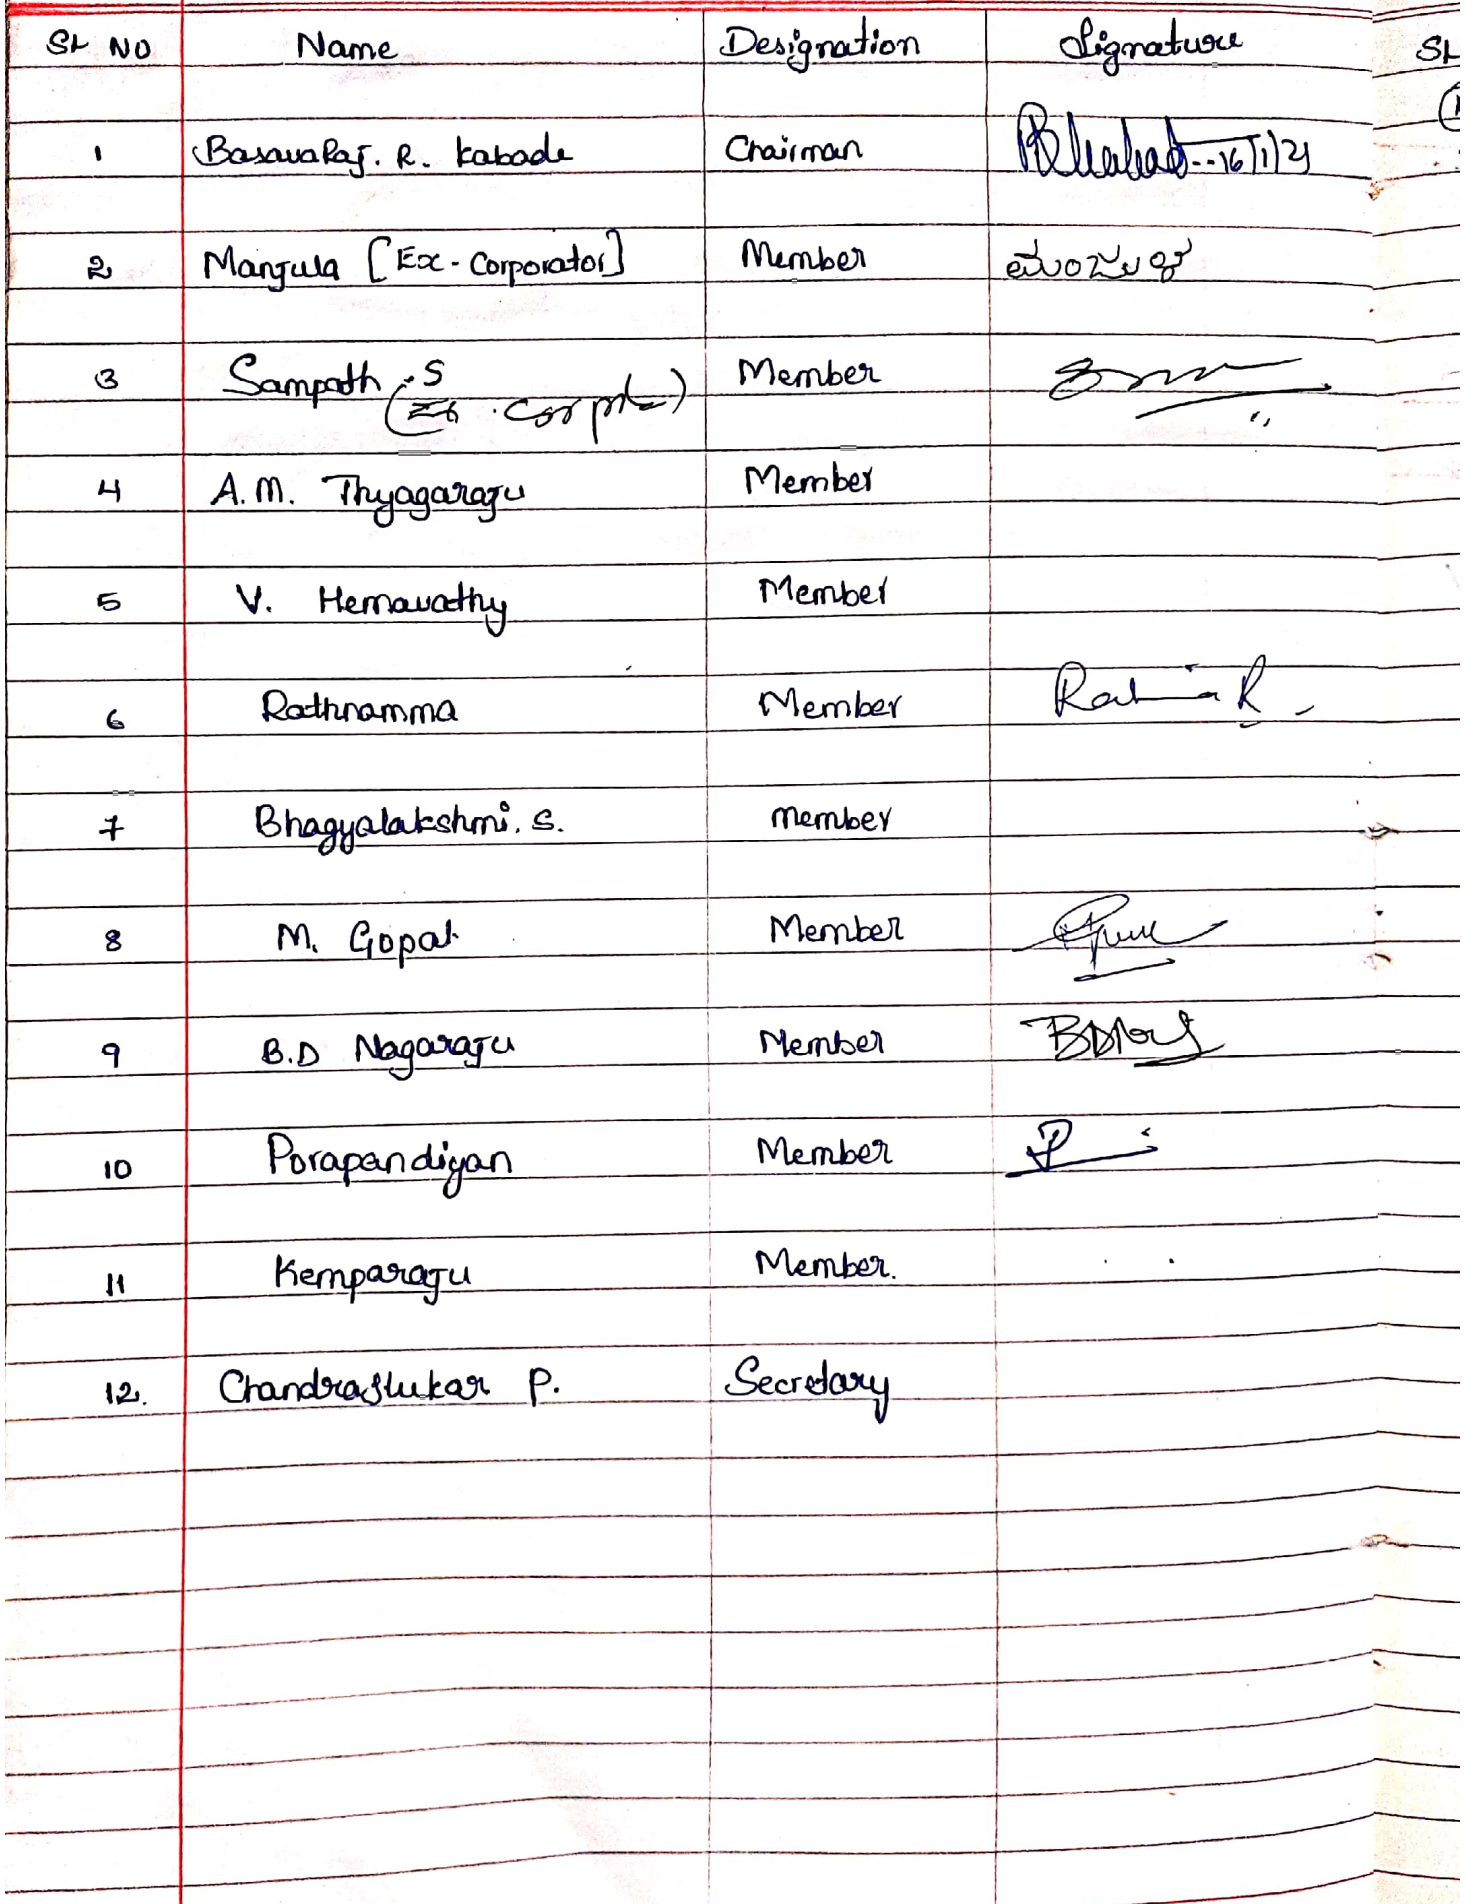 SL NO Name Designation Signature SL
1 BasavaRaj. R. Kabade Chairman 16/1/21
2 Manjula [Ex-Corporator] Member ಮಂಜುಳ
3 Sampath .S Member
4 A.M. Thyagaraju Member
5 V. Hemavathy Member
6 Rathnamma Member
7 Bhagyalakshmi. S. Member
8 M. Gopal Member
9 B.D Nagaraju Member
10 Porapandiyan Member
11 Kemparaju Member.
12. Chandrashekar P. Secretary